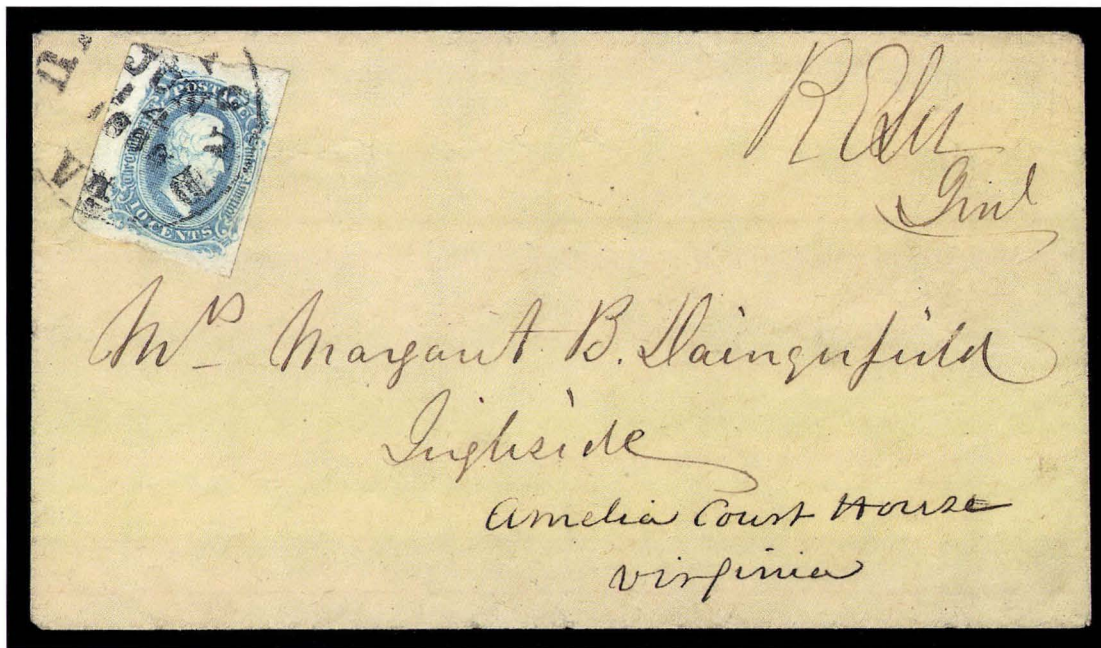 POSTAGE
10 CENTS
R E Lee
Genl
Mrs Margaret B. Daingerfield
Ingleside
Amelia Court House
Virginia